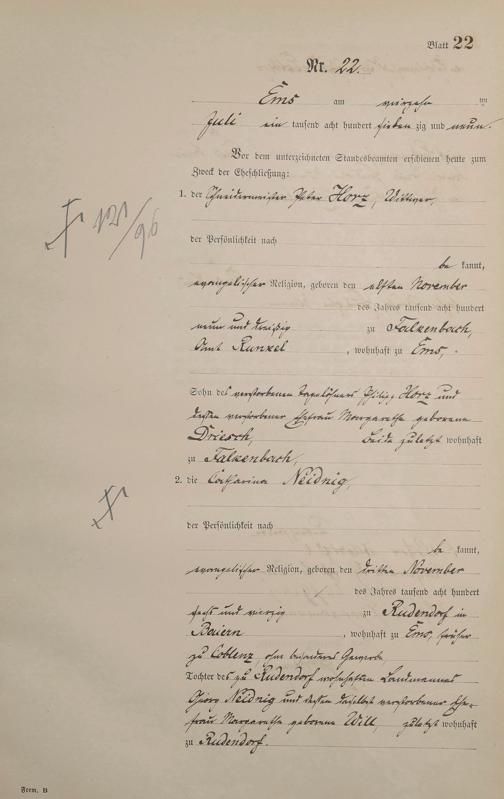 Blatt 22
Nr. 22.
Ems am vierzehn ten
Juli ein tausend acht hundert sieben zig und neun.
Vor dem unterzeichneten Standesbeamten erschienen heute zum
Zweck der Eheschließung:
1. der Schneidermeister Peter Horz, Wittwer,
der Persönlichkeit nach
be kannt,
evangelischer Religion, geboren den elften November
des Jahres tausend acht hundert
neun und dreißig zu Falkenbach,
Amt Runkel, wohnhaft zu Ems,
Sohn des verstorbenen Tagelöhners Philipp Horz und
dessen verstorbener Ehefrau Margaretha geborene
Driesch, beide zuletzt wohnhaft
zu Falkenbach,
2. die Catharina Neidnig,
der Persönlichkeit nach
be kannt,
evangelischer Religion, geboren den dritten November
des Jahres tausend acht hundert
sechs und vierzig zu Rudendorf in
Baiern, wohnhaft zu Ems, früher
zu Coblenz, ohne besonderes Gewerbe,
Tochter des zu Rudendorf wohnhaften Landmannes
Georg Neidnig und dessen daselbst verstorbener Ehe-
frau Margaretha geborene Will, zuletzt wohnhaft
zu Rudendorf.
Form. B